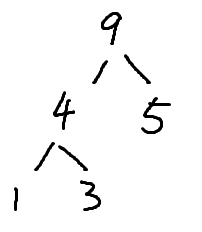 9
4 5
1 3